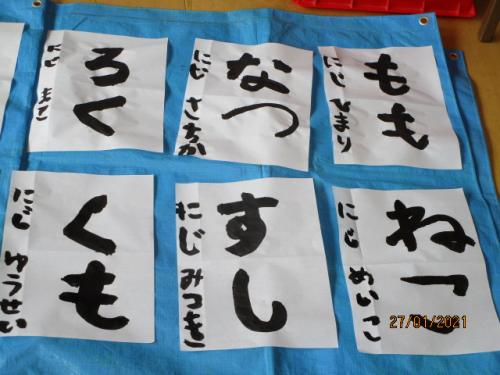 もも
にじ ひまり
なつ
にじ さちか
ろく
にじ
ねっこ
にじ めいこ
すし
にじ みつき
くも
にじ ゆうせい
27/01/2021